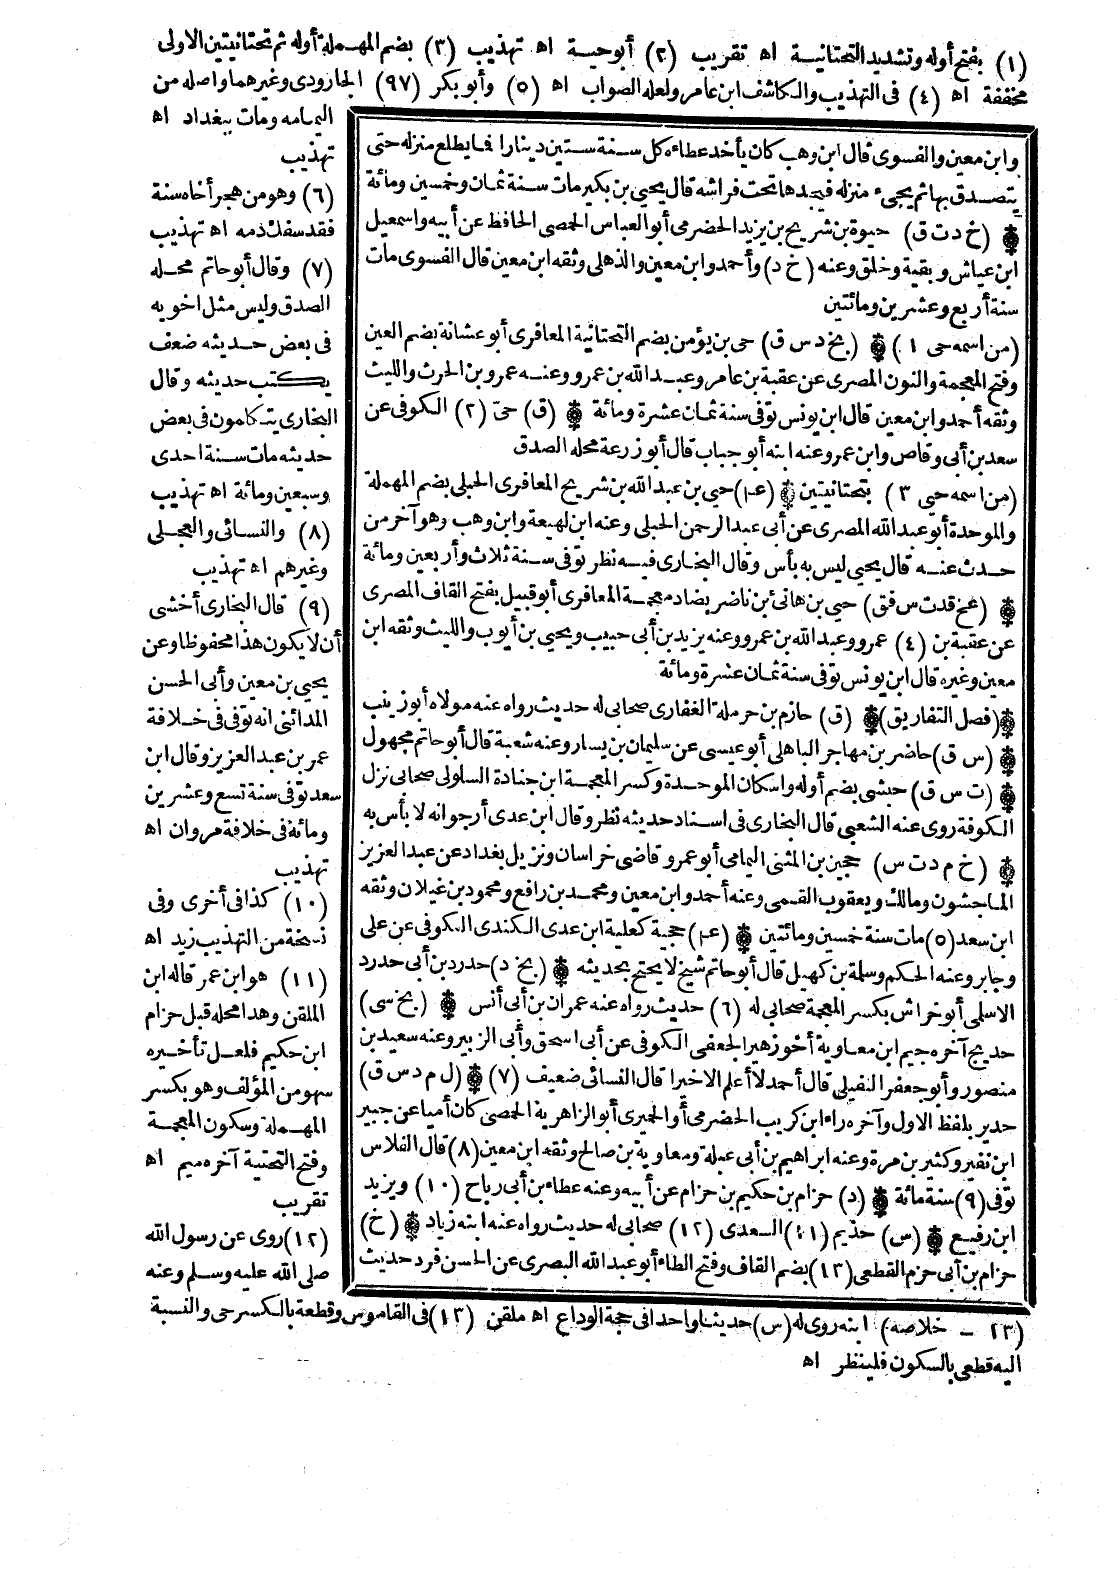 (١) بفتح أوله وتشديد التحتانية اه تقريب (٢) أبوحية اه تهذيب (٣) بضم المهملة أوله ثم تحتانيتين الاولى
مخففة اه (٤) فى التهذيب والكاشف ابن عامر ولعله الصواب اه (٥) وأبو بكر (٩٧) الجارودى وغيرهما واصله من
اليمامه ومات ببغداد اه
تهذيب
(٦) وهو من هجر أخاه سنة
فقد سفك دمه اه تهذيب
(٧) وقال أبو حاتم محله
الصدق وليس مثل اخويه
فى بعض حديثه ضعف
يكتب حديثه وقال
البخارى يتكلمون فى بعض
حديثه مات سنة احدى
وسبعين ومائة اه تهذيب
(٨) والنسائى والعجلى
وغيرهم اه تهذيب
(٩) قال البخارى أخشى
أن لا يكون هذا محفوظا وعن
يحيى بن معين وأبى الحسن
المدائنى انه توفى فى خلافة
عمر بن عبد العزيز وقال ابن
سعد توفى سنة تسع وعشرين
ومائة فى خلافة مروان اه
تهذيب
(١٠) كذا فى أخرى وفى
نسخة من التهذيب زيد اه
(١١) هو ابن عمر قاله ابن
الملقن وهذا محله قبل حزام
ابن حكيم فلعل تأخيره
سهو من المؤلف وهو بكسر
المهملة وسكون المعجمة
وفتح التحتية آخره ميم اه
تقريب
(١٢) روى عن رسول الله
صلى الله عليه وسلم وعنه
وابن معين والفسوى قال ابن وهب كان يأخذ عطاءه كل سنة ستين دينارا فما يطلع منزله حتى
يتصدق بها ثم يجىء منزله فيجدها تحت فراشه قال يحيى بن بكير مات سنة ثمان وخمسين ومائة
(خ د ت ق) حيوة بن شريح بن يزيد الحضرمى أبو العباس الحمصى الحافظ عن أبيه واسمعيل
ابن عياش وبقية وخلق وعنه (خ د) وأحمد وابن معين والذهلى وثقه ابن معين قال الفسوى مات
سنة أربع وعشرين ومائتين
(من اسمه حى ١) (بخ د س ق) حى بن يؤمن بضم التحتانية المعافرى أبو عشانة بضم العين
وفتح المعجمة والنون المصرى عن عقبة بن عامر وعبد الله بن عمرو وعنه عمرو بن الحرث والليث
وثقه أحمد وابن معين قال ابن يونس توفى سنة ثمان عشرة ومائة (ق) حىّ (٢) الكوفى عن
سعد بن أبى وقاص وابن عمر وعنه ابنه أبو جباب قال أبو زرعة محله الصدق
(من اسمه حيى ٣) بتحتانيتين (عـ١) حيى بن عبد الله بن شريح المعافرى الحبلى بضم المهملة
والموحدة أبو عبد الله المصرى عن أبى عبد الرحمن الحبلى وعنه ابن لهيعة وابن وهب وهو آخر من
حدث عنه قال يحيى ليس به بأس وقال البخارى فيه نظر توفى سنة ثلاث وأربعين ومائة
(عخ قد ت س فق) حيى بن هانئ بن ناضر بضاد معجمة المعافرى أبو قبيل بفتح القاف المصرى
عن عقبة بن (٤) عمرو وعبد الله بن عمرو وعنه يزيد بن أبى حبيب ويحيى بن أيوب والليث وثقه ابن
معين وغيره قال ابن يونس توفى سنة ثمان عشرة ومائة
(فصل التفاريق) (ق) حازم بن حرملة الغفارى صحابى له حديث رواه عنه مولاه أبو زينب
(س ق) حاضر بن مهاجر الباهلى أبو عيسى عن سليمان بن يسار وعنه شعبة قال أبو حاتم مجهول
(ت س ق) حبشى بضم أوله واسكان الموحدة وكسر المعجمة ابن جنادة السلولى صحابى نزل
الكوفة روى عنه الشعبى قال البخارى فى اسناد حديثه نظر وقال ابن عدى أرجو انه لا بأس به
(خ م د ت س) حجين بن المثنى اليمامى أبو عمرو قاضى خراسان ونزيل بغداد عن عبد العزيز
الماجشون ومالك ويعقوب القمى وعنه أحمد وابن معين ومحمد بن رافع ومحمود بن غيلان وثقه
ابن سعد (٥) مات سنة خمسين ومائتين (عـ١) حجية كعلية ابن عدى الكندى الكوفى عن على
وجابر وعنه الحكم وسلمة بن كهيل قال أبو حاتم شيخ لا يحتج بحديثه (بخ د) حدرد بن أبى حدرد
الاسلمى أبو خراش بكسر المعجمة صحابى له (٦) حديث رواه عنه عمران بن أبى أنس (بخ سى)
حديج آخره جيم ابن معاوية أخو زهير الجعفى الكوفى عن أبى اسحق وأبى الزبير وعنه سعيد بن
منصور وأبو جعفر النفيلى قال أحمد لا أعلم الا خيرا قال النسائى ضعيف (٧) (ل م د س ق)
حدير بلفظ الاول وآخره راء ابن كريب الحضرمى أو الحميرى أبو الزاهرية الحمصى كان أميا عن جبير
ابن نفير وكثير بن مرة وعنه ابراهيم بن أبى عبلة ومعاوية بن صالح وثقه ابن معين (٨) قال الفلاس
توفى (٩) سنة مائة (د) حزام بن حكيم بن حزام عن أبيه وعنه عطاء بن أبى رباح (١٠) ويزيد
ابن رفيع (س) حذيم (١١) السعدى (١٢) صحابى له حديث رواه عنه ابنه زياد (خ)
حزام بن أبى حزم القطعى (١٣) بضم القاف وفتح الطاء أبو عبد الله البصرى عن الحسن فرد حديث
(٢٣ - خلاصه) ابنه روى له (س) حديثا واحدا فى حجة الوداع اه ملقن (١٣) فى القاموس وقطعة بالكسر حى والنسبة
اليه قطعى بالسكون فلينظر اه